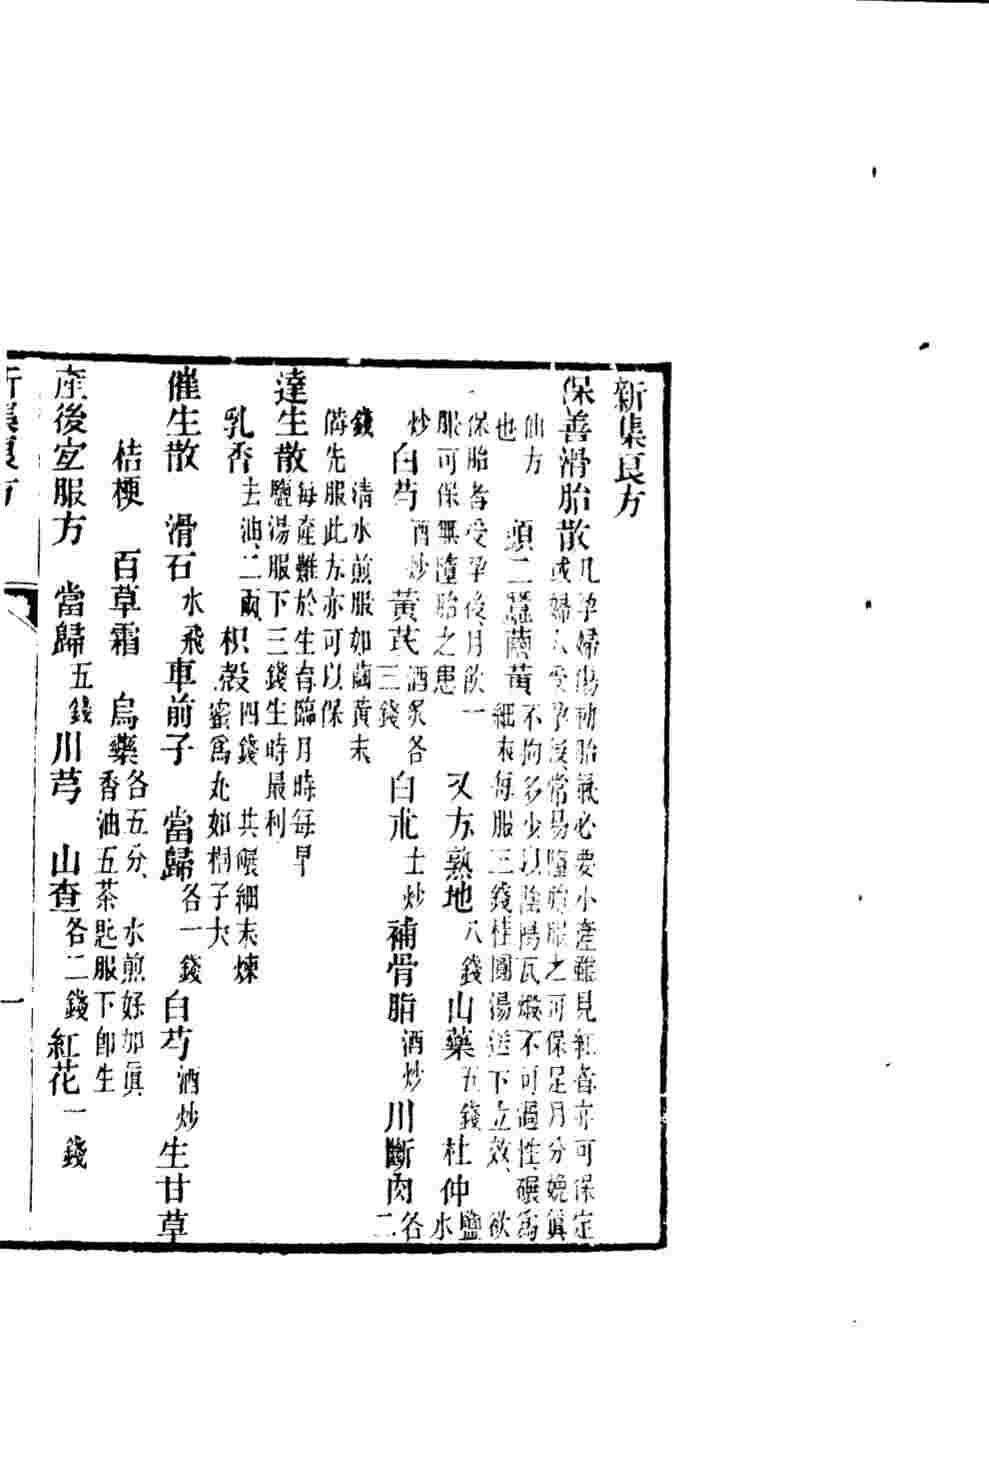 新集良方
保善滑胎散 凡孕婦傷動胎氣必要小產雖見紅者亦可保定或婦人受孕後常易墮胎服之可保足月分娩眞
仙方也 頭二蠶繭黃 不拘多少以陰陽瓦煅不可過性碾爲細末每服三錢桂圓湯送下立效欲
保胎者受孕後月飲一服可保無墮胎之患 又方熟地 八錢 山藥 五錢 杜仲 鹽水
炒 白芍 酒炒 黃芪 酒炙各三錢 白朮 土炒 補骨脂 酒炒 川斷肉 各二
錢 清水煎服如繭黃末備先服此方亦可以保
達生散 每產難於生育臨月時每早鹽湯服下三錢生時最利
乳香 去油二兩 枳殼 四錢 共碾細末煉蜜爲丸如梧子大
催生散 滑石 水飛 車前子 當歸 各一錢 白芍 酒炒 生甘草
桔梗 百草霜 烏藥 各五分 水煎好加眞香油五茶匙服下卽生
產後宜服方 當歸 五錢 川芎 山查 各二錢 紅花 一錢
新集良方
一